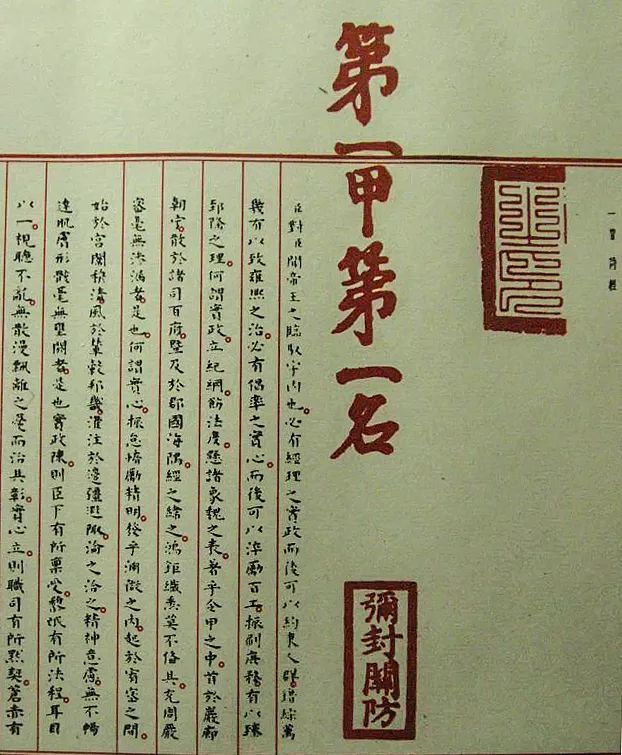 一習詩經
第一甲第一名
彌封關防
臣對臣聞帝王之臨馭宇內也必有經理之實政而後可以約束人群錯綜萬
幾有以致雍熙之治必有倡率之實心而後可以淬勵百工振刷庶務有以臻
郅隆之理何謂實政立紀綱飭法度懸諸象魏之表著乎令甲之中首於嚴廊
朝宁散於諸司百府暨及於郡國海隅經之緯之鴻鉅纖悉莫不備具充周嚴
密毫無滲漏者是也何謂實心振怠惰勵精明發乎淵微之內起於宥密之間
始於宮闈穆清風於輦轂邦畿灌注於邊疆遐陬淪之洽之精神意慮無不暢
達肌膚形骸毫無壅閼者是也實政陳則臣下有所稟受黎氓有所法程耳目
以一視聽不亂無散漫飄離之憂而治具彰實心立則職司有所默契蒼赤有